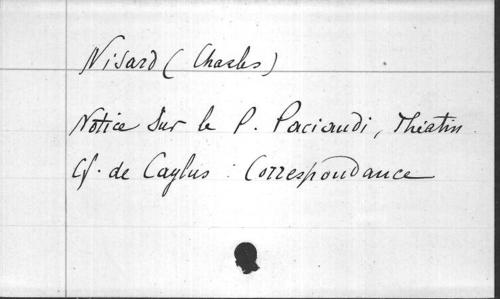 Nisard (Charles)
Notice sur le P. Paciaudi, Théatin
Cf. de Caylus : Correspondance